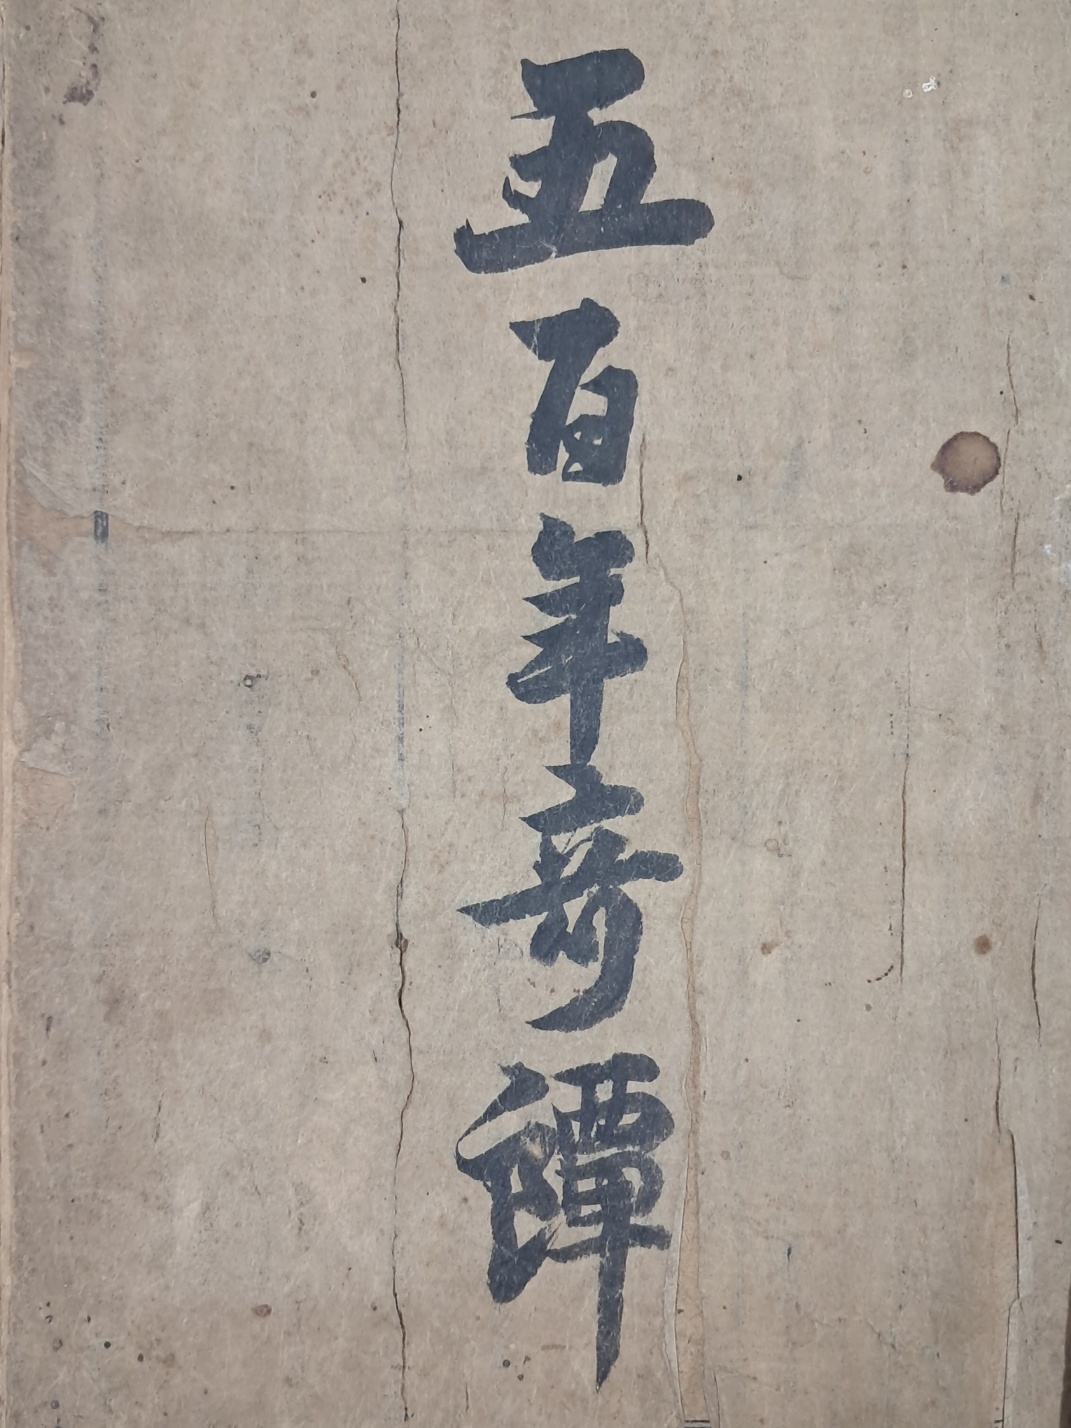 五百年奇譚